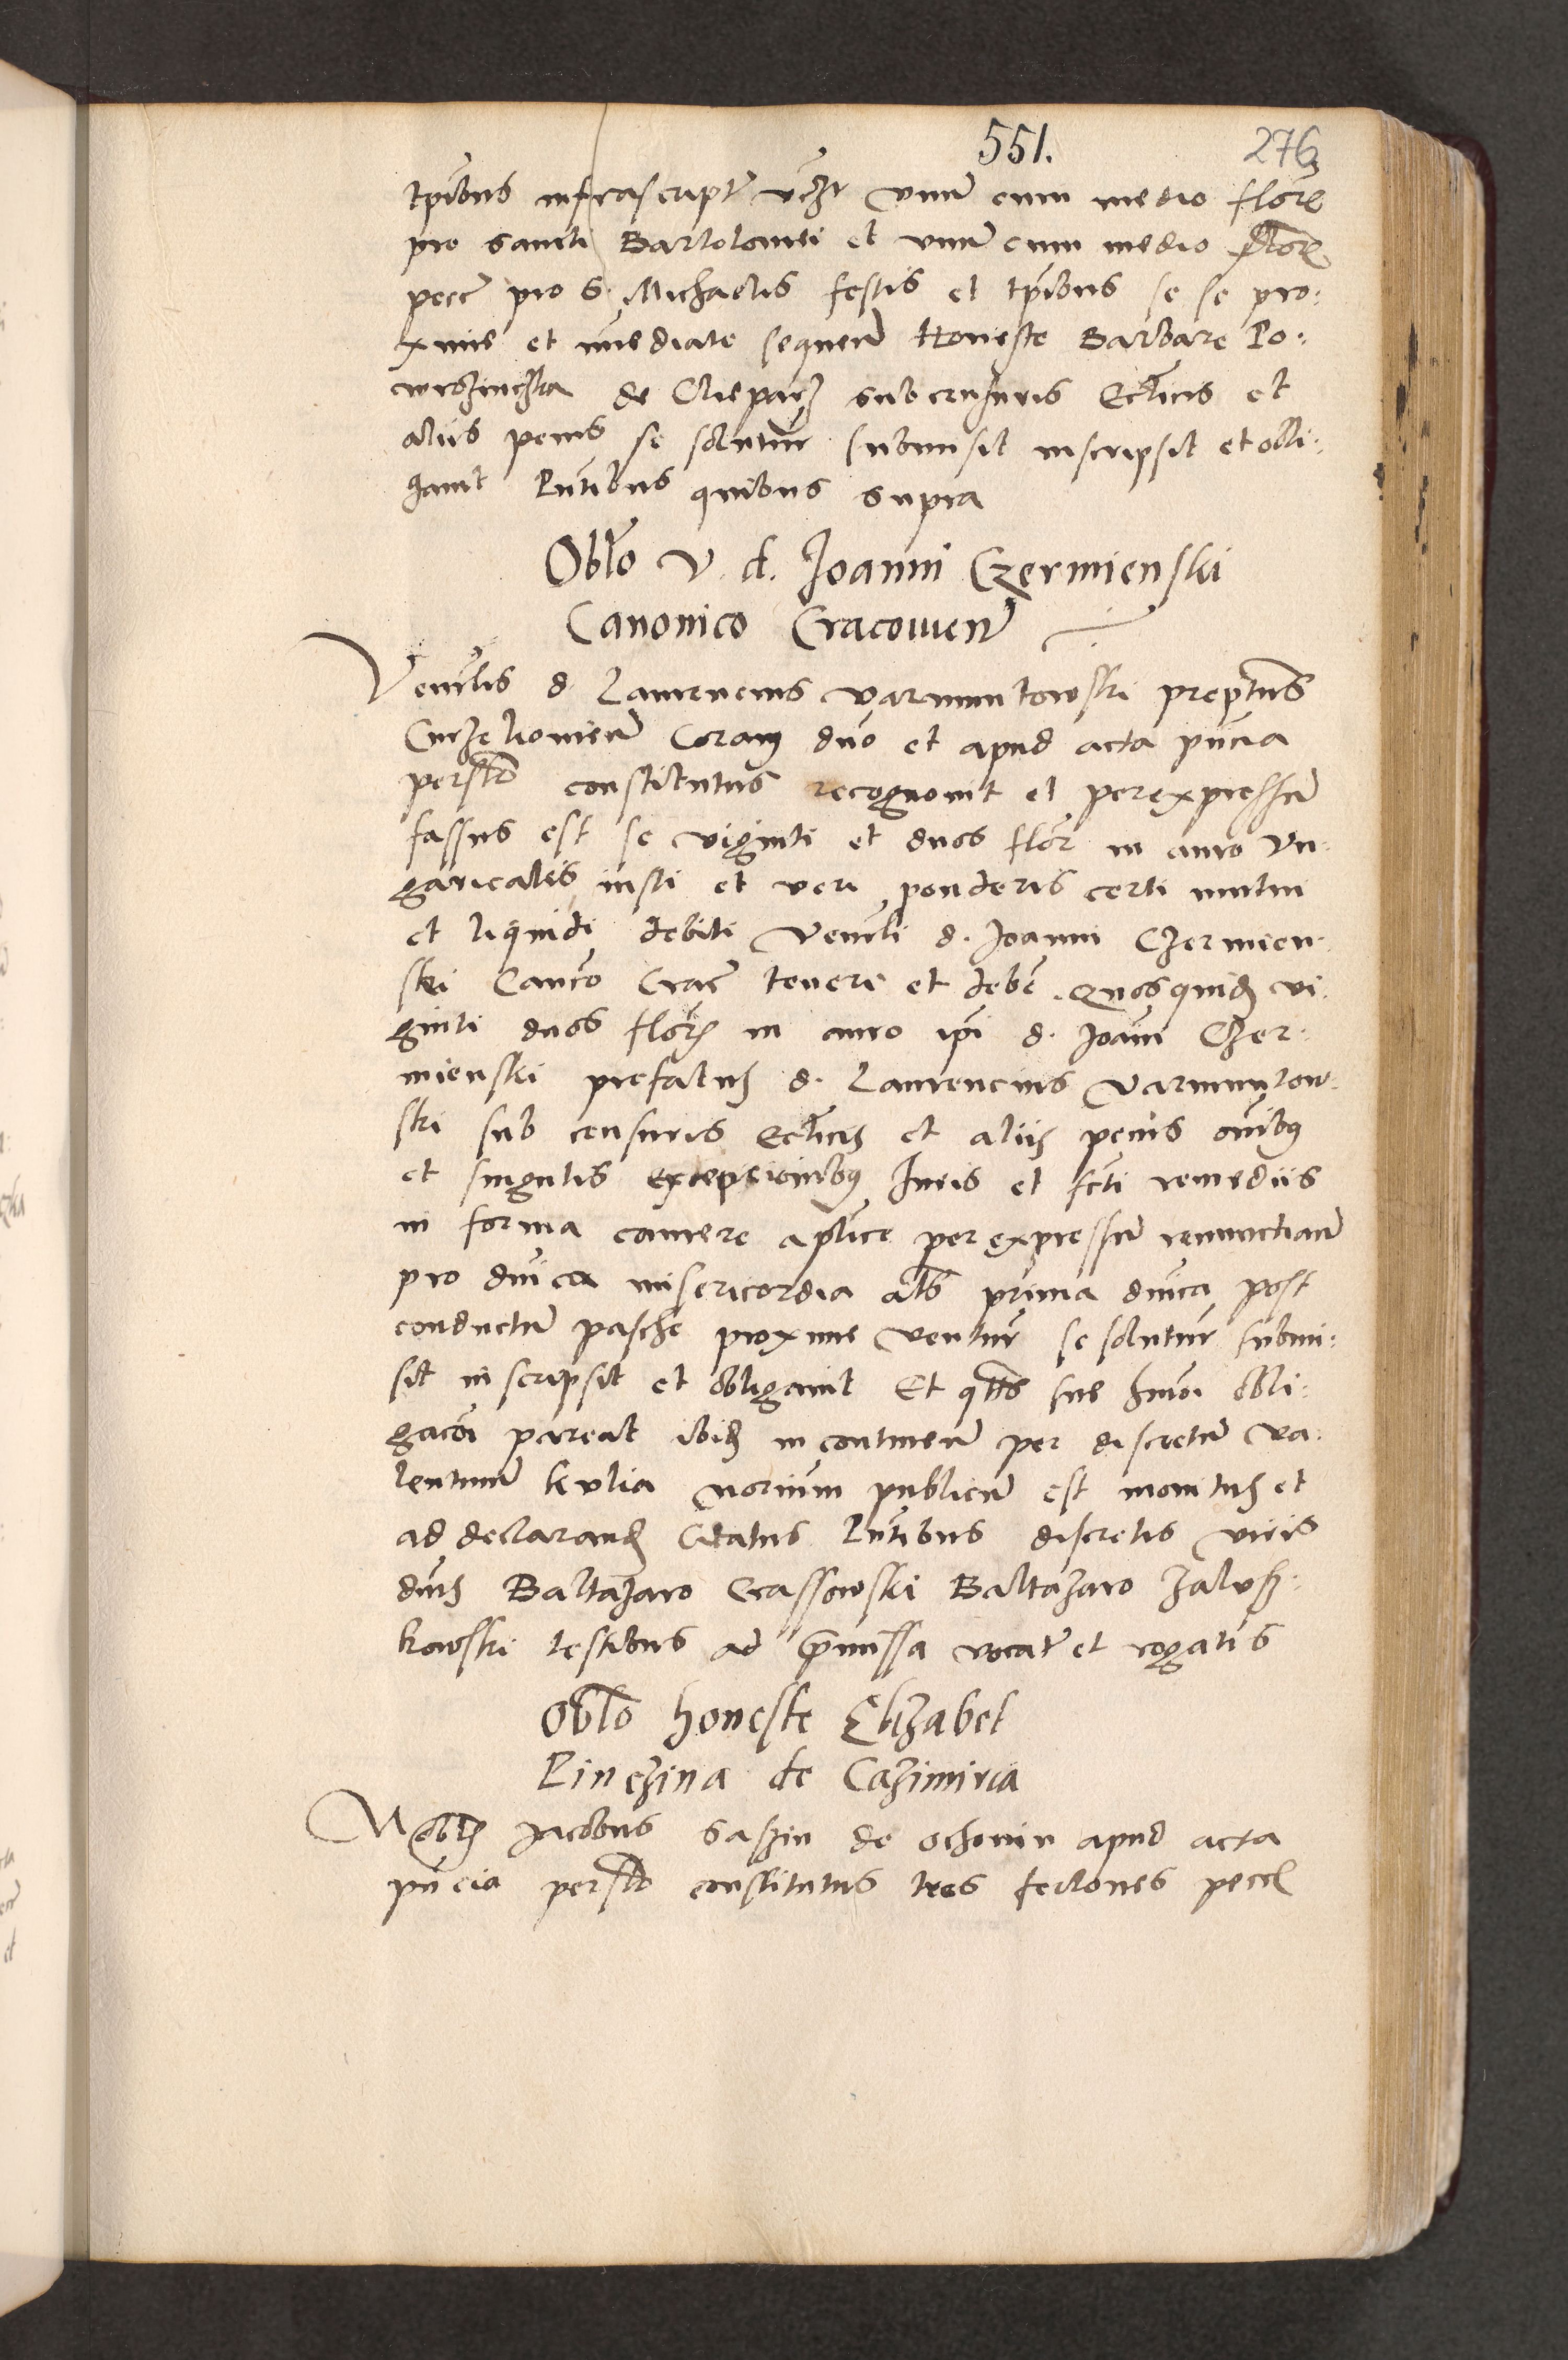 551.
276
tpibus infrascript vczt vnu cum medio flore
pro sancti Bartolomei et vnu cum medio flore
pecc pro S. Michaelis festis et tpibus se se pro:
xime et imediate sequen Honeste Barbare Po:
de Cliepardz sub censuris Eccticis et
aliis penis se soluturu submisit inscripsit et obli:
gauit Pntibus quibus supra
Oblo V. d. Joanni Czermienski
Canonico Cracouien
Venrlis d. Laurencius Varmuntowski preptus
Curzelouien Coram dno et apud acta pncia
persolr constitutus recognouit et per expressu
fassus est se viginti et duos flor in auro Vn:
garicales iusti et veri ponderis certi mutui
et liquidi debiti Venrli d. Joanni Czermien:
ski Canco Crac teneri et debe. Quosquidz vi:
ginti duos flor in auro ipi d. Joani Czer:
mienski prefatus d. Laurencius Varmuntow:
ski sub censuris Eccticis et aliis penis oibus
et singulis excepcionibus Juris et fcti remediis
in forma camere aplice per expressu renunctian
pro dnica misericordia als prima dnica post
conductu pasche proxime ventur se solutur submi:
sit inscripsit et obligauit Et qtts sue hmoi obli:
gacoi pareat ibidz in continen per discretu Va:
lentinu kulia Norium publicu est monitus et
ad declarandz Citatus Pntibus discretis viris
dnis Baltazaro Crassowski Baltazaro Zalus:
kowski testibus ad premissa vocat et rogatis
Oblo honeste Elizabet
Pinczina de Cazimiria
Noblis Jacobus Saszin de Ochonin apud acta
pncia persolr constitutus tres fertones pecc